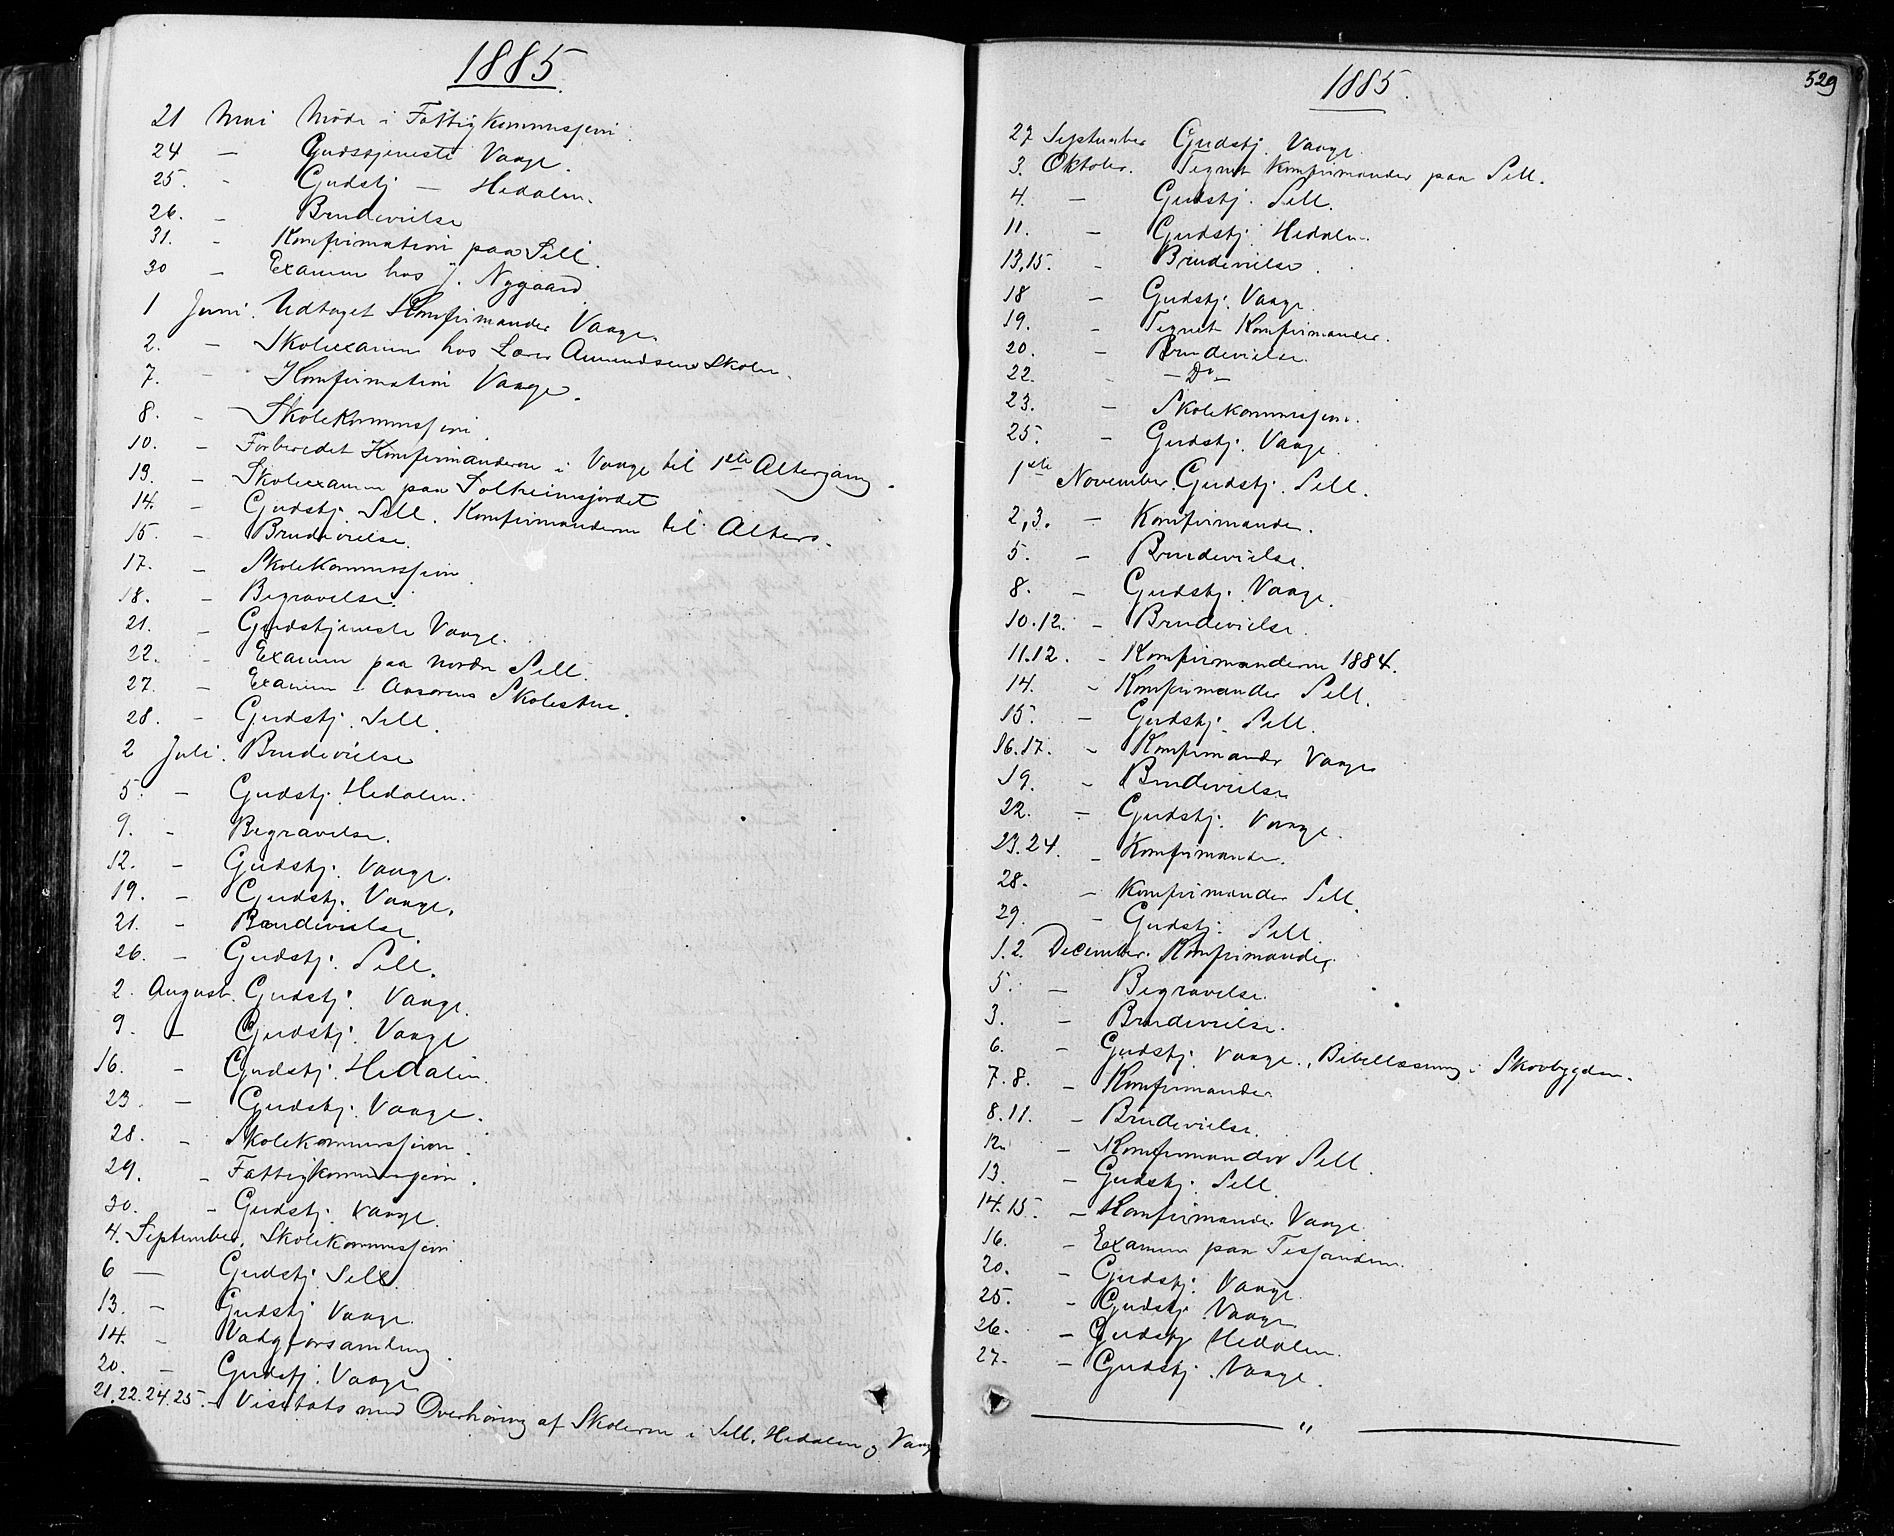 1885.
21 Mai Möde i Fattigkommissjoni.
24 — Gudstjeneste Vaage.
25. - Gudstj — Hedalen.
26. - Brudevielse
31. - Konfirmation paa Sell.
30 - Examen hos J. Nygaard
1 Juni. Udtaget Konfirmander Vaage.
2. - Skoleexamen hos Lærer Amundsens Skoler.
7. - Konfirmation Vaage.
8. - Skolekommissjoni.
10. - Forberedet Konfirmanderne i Vaage til 1ste Altergang.
13. - Skoleexamen paa Solheimsjordet
14. - Gudstj. Sell. Konfirmanderne til Alters.
15 - Brudevielse.
17. - Skolekommissjon.
18. - Begravelse.
21. - Gudstjeneste Vaage.
22. - Examen paa nordre Sell.
27. - Examen - Skolestue.
28. - Gudstj. Sell.
2 Juli. Brudevielse
5. - Gudstj. Hedalen.
9. - Begravelse.
12. - Gudstj. Vaage.
19. - Gudstj. Vaage.
21. - Brudevielse.
26. - Gudstj. Sell.
2. August. Gudstj. Vaage.
9. - Gudstj. Vaage
16. - Gudstj. Hedalen.
23. - Gudstj. Vaage.
28. - Skolekommissjon.
29. - Fattigkommissjon.
30. - Gudstj. Vaage.
4. September. Skolekommissjoni
6 — Gudstj. Sell.
13. - Gudstj Vaage.
14. - Valgforsamling.
20. - Gudstj. Vaage
21.22.24.25. - Visitats med Overhöring af Skolerne i Sell, Hedalen og Vaage
529
1885.
27 September Gudstj. Vaage.
3. Oktober. Tegnet Konfirmander paa Sell.
4. - Gudstj. Sell.
11. - Gudstj. Hedalen.
13,15. - Brudevielse.
18 - Gudstj. Vaage.
19. - Tegnet Konfirmander.
20. - Brudevielse.
22. - Do -
23. - Skolekommissjon.
25. - Gudstj. Vaage.
1ste November. Gudstj. Sell.
2,3. - Konfirmander.
5. - Brudevielse.
8. - Gudstj. Vaage.
10.12. - Brudevielse.
11.12. - Konfirmanderne 1884.
14. - Konfirmander Sell.
15. - Gudstj. Sell.
16.17. - Konfirmander Vaage
19. - Brudevielse
22. - Gudstj. Vaage.
23.24. - Konfirmander.
28. - Konfirmander Sell.
29. - Gudstj. Sell.
1.2. December. Konfirmander.
5. - Begravelse.
3. - Brudevielse.
6. - Gudstj. Vaage., Bibellæsning i Skovbygden.
7.8. - Konfirmander
8.11. - Brudevielse.
12. - Konfirmander Sell.
13. - Gudstj. Sell.
14.15. - Konfirmander Vaage
16. - Examen paa Tessanden.
20. - Gudstj. Vaage.
25. - Gudstj. Vaage.
26. - Gudstj. Hedalen.
27. - Gudstj. Vaage.
— " —